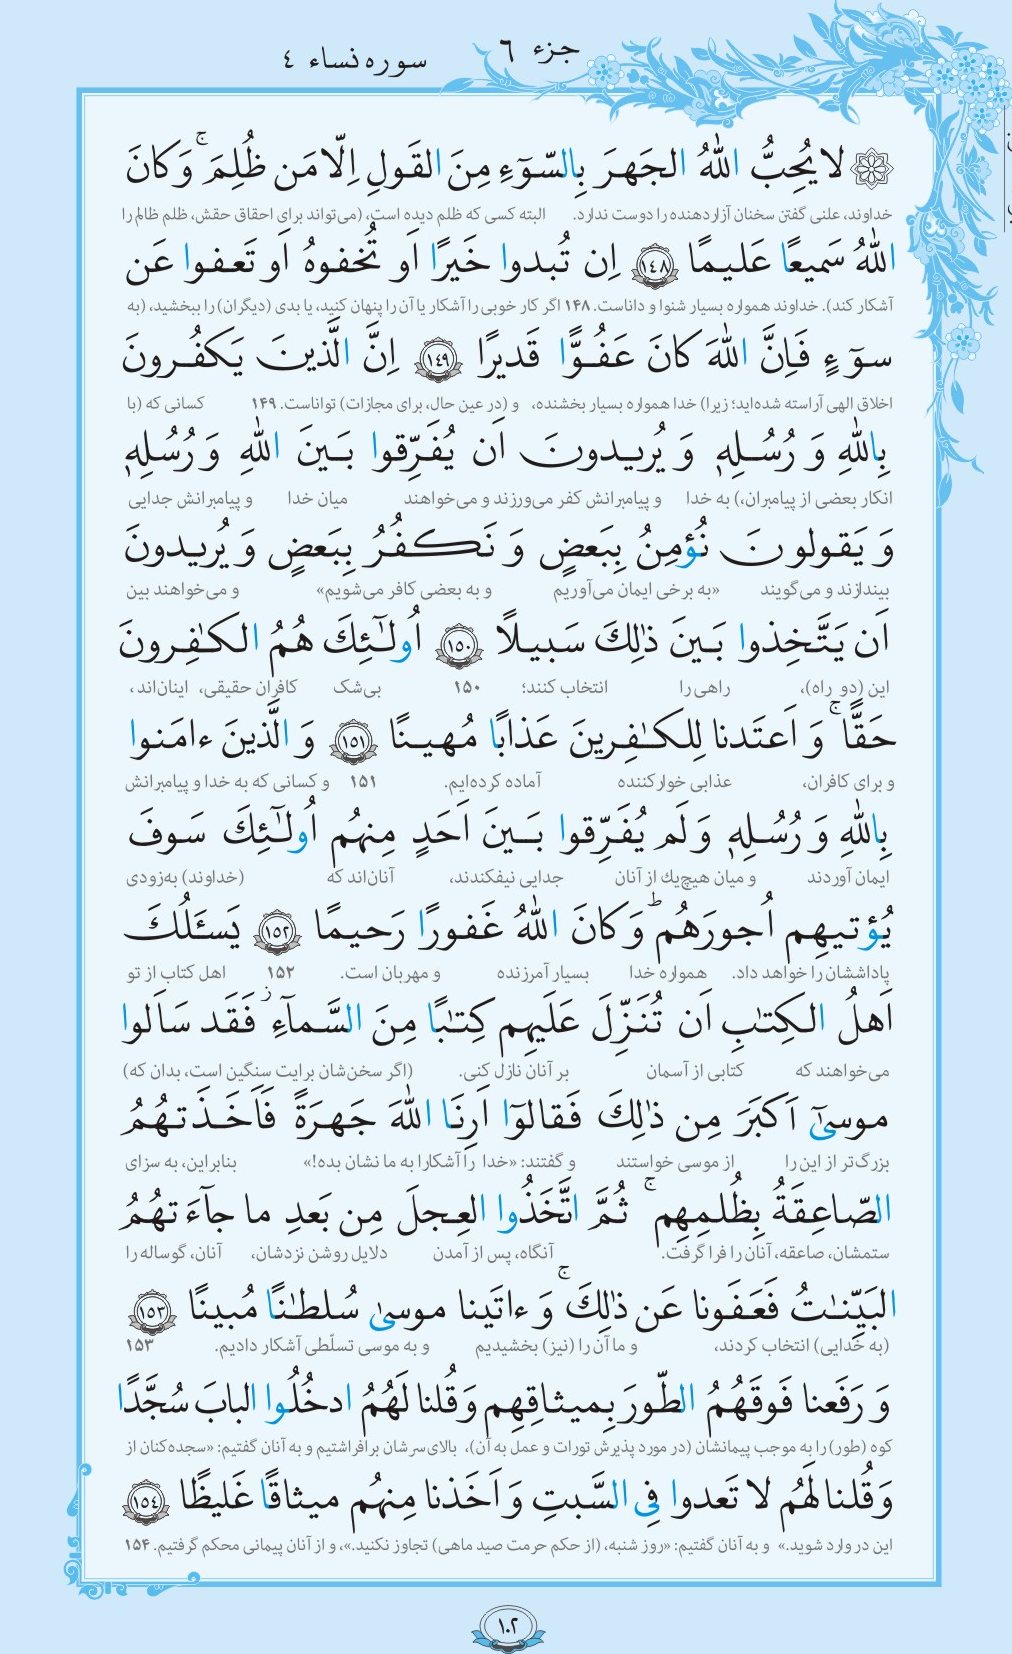 جزء ٦
سوره نساء ٤
لا يُحِبُّ اللّٰهُ الجَهرَ بِالسّوٓءِ مِنَ القَولِ اِلّا مَن ظُلِمَ ۚ وَ كانَ
خداوند، علنی گفتن سخنان آزاردهنده را دوست ندارد. البته کسی که ظلم دیده است، (می‌تواند برای احقاق حقش، ظلم ظالم را
اللّٰهُ سَميعًا عَليمًا ١٤٨ اِن تُبدوا خَيرًا اَو تُخفوهُ اَو تَعفوا عَن
آشکار کند). خداوند همواره بسیار شنوا و داناست. ۱۴۸ اگر کار خوبی را آشکار یا آن را پنهان کنید، یا بدی (دیگران) را ببخشید، (به
سوٓءٍ فَاِنَّ اللّٰهَ كانَ عَفُوًّا قَديرًا ١٤٩ اِنَّ الَّذينَ يَكفُرونَ
اخلاق الهی آراسته شده‌اید؛ زیرا) خدا همواره بسیار بخشنده، و (در عین حال، برای مجازات) تواناست. ۱۴۹ کسانی که (با
بِاللّٰهِ وَ رُسُلِهٖ وَ يُريدونَ اَن يُفَرِّقوا بَينَ اللّٰهِ وَ رُسُلِهٖ
انکار بعضی از پیامبران،) به خدا و پیامبرانش کفر می‌ورزند و می‌خواهند میان خدا و پیامبرانش جدایی
وَ يَقولونَ نُؤمِنُ بِبَعضٍ وَ نَكفُرُ بِبَعضٍ وَ يُريدونَ
بیندازند و می‌گویند «به برخی ایمان می‌آوریم و به بعضی کافر می‌شویم» و می‌خواهند بین
اَن يَتَّخِذوا بَينَ ذٰلِكَ سَبيلًا ١٥٠ اُولٰٓئِكَ هُمُ الكٰفِرونَ
این (دو راه)، راهی را انتخاب کنند؛ ۱۵۰ بی‌شک کافران حقیقی، اینان‌اند،
حَقًّا ۚ وَ اَعتَدنا لِلكٰفِرينَ عَذابًا مُهينًا ١٥١ وَ الَّذينَ ءامَنوا
و برای کافران، عذابی خوارکننده آماده کرده‌ایم. ۱۵۱ و کسانی که به خدا و پیامبرانش
بِاللّٰهِ وَ رُسُلِهٖ وَ لَم يُفَرِّقوا بَينَ اَحَدٍ مِنهُم اُولٰٓئِكَ سَوفَ
ایمان آوردند و میان هیچ‌یك از آنان جدایی نیفکندند، آنان‌اند که (خداوند) به‌زودی
يُؤتيهِم اُجورَهُم ۗ وَ كانَ اللّٰهُ غَفورًا رَحيمًا ١٥٢ يَسـَٔلُكَ
پاداششان را خواهد داد. همواره خدا بسیار آمرزنده و مهربان است. ۱۵۲ اهل کتاب از تو
اَهلُ الكِتٰبِ اَن تُنَزِّلَ عَلَيهِم كِتٰبًا مِنَ السَّمآءِ فَقَد سَاَلوا
می‌خواهند که کتابی از آسمان بر آنان نازل کنی. (اگر سخن‌شان برایت سنگین است، بدان که)
موسىٰٓ اَكبَرَ مِن ذٰلِكَ فَقالوٓا اَرِنَا اللّٰهَ جَهرَةً فَاَخَذَتهُمُ
بزرگ‌تر از این را از موسی خواستند و گفتند: «خدا را آشکارا به ما نشان بده!» بنابراین، به سزای
الصّاعِقَةُ بِظُلمِهِم ۚ ثُمَّ اتَّخَذُوا العِجلَ مِن بَعدِ ما جآءَتهُمُ
ستمشان، صاعقه، آنان را فرا گرفت. آنگاه، پس از آمدن دلایل روشن نزدشان، آنان، گوساله را
البَيِّنٰتُ فَعَفَونا عَن ذٰلِكَ ۚ وَ ءاتَينا موسىٰ سُلطٰنًا مُبينًا ١٥٣
(به خدایی) انتخاب کردند، و ما آن را (نیز) بخشیدیم و به موسی تسلّطی آشکار دادیم. ۱۵۳
وَ رَفَعنا فَوقَهُمُ الطّورَ بِميثاقِهِم وَ قُلنا لَهُمُ ادخُلُوا البابَ سُجَّدًا
کوه (طور) را به موجب پیمانشان (در مورد پذیرش تورات و عمل به آن)، بالای سرشان برافراشتیم و به آنان گفتیم: «سجده‌کنان از
وَ قُلنا لَهُم لا تَعدوا فِى السَّبتِ وَ اَخَذنا مِنهُم ميثاقًا غَليظًا ١٥٤
این در وارد شوید.» و به آنان گفتیم: «روز شنبه، (از حکم حرمت صید ماهی) تجاوز نکنید.»، و از آنان پیمانی محکم گرفتیم. ۱۵۴
١٠٢